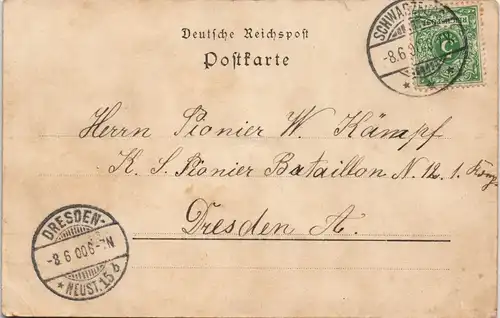 Deutsche Reichspost
Postkarte
-8.6
Herrn Pionier W. Kämpf
K. S. Pionier Bataillon N. 12. 1.
Dresden A.
DRESDEN-
-8 6 00 6-7N
* NEUST. 15 b